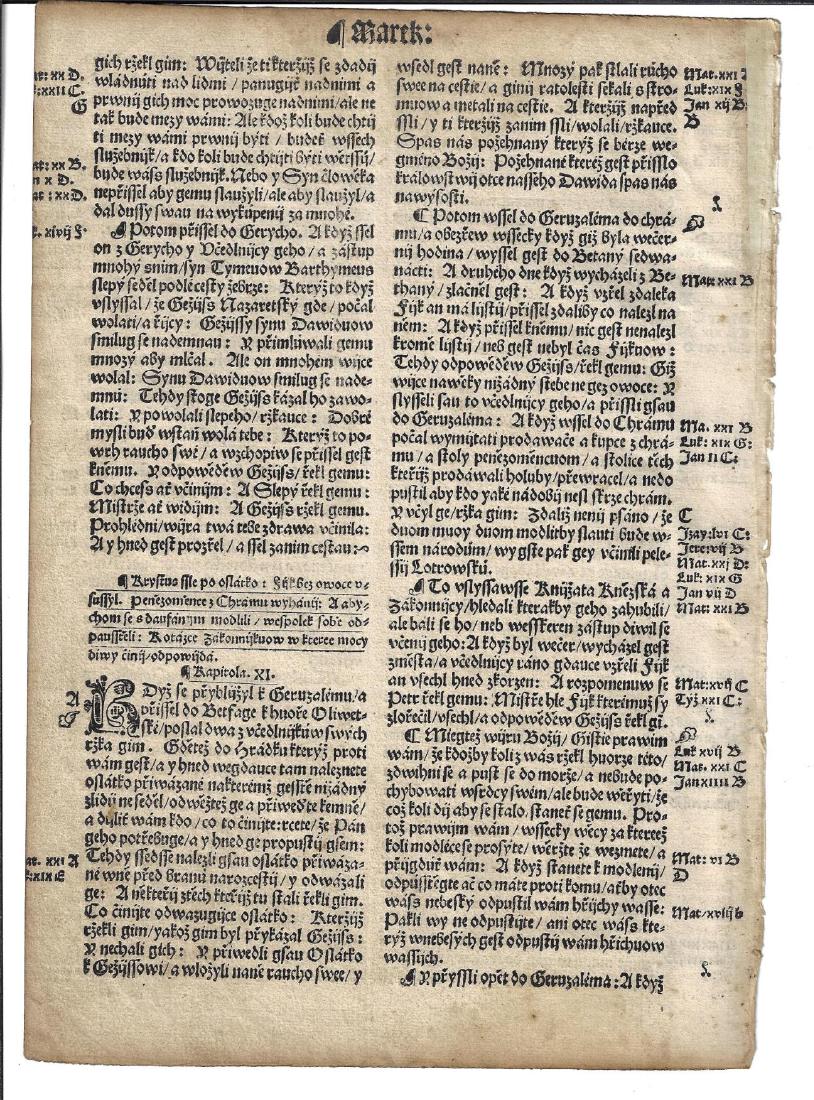 ¶ Marek:
at: xx D.
:xxii C.
G
at: xx B.
n x D.
at: xx D.
. xiviij §.
gich ržekl gim: Wijteli že ti kteržijž se zdadij
wládnúti nad lidmi / panugijť nadnimi a
prwnij gich moc prowozuge nadnimi / ale ne
tak bude mezy wámi: Ale kdož koli bude chtij
ti mezy wámi prwnij býti / budeť wssech
služebnijk / a kdo koli bude chtijti býti wětssij /
bude wáss služebnijk. Nebo y Syn člowěka
nepřissel aby gemu slaužyli / ale aby slaužyl / a
dal dussy swau na wykupenij za mnohé.
¶ Potom přissel do Gerycho. A když ssel
on z Gerycho y Včedlnijcy geho / a zástup
mnohý snim / syn Tymeuow Barthymeus
slepý seděl podlécesty žebrze: Kterýž to když
vslyssal / že Gežijss Nazaretský gde / počal
wolati / a řijcy: Gežijssy synu Dawiduow
smilug se nademnau: Y přimlúwali gemu
mnozý aby mlčal. Ale on mnohem wijce
wolal: Synu Dawiduow smilug se nade-
mnú: Tehdy stoge Gežijss kázal ho zawo-
lati: Y powolali slepeho / ržkauce: Dobré
mysli buď wstaň wolá tebe: Kterýž to po-
wrh raucho swé / a wzchopiw se přissel gest
kněmu. Y odpowěděw Gežijss / řekl gemu:
Co chcess ať včinijm: A Slepý řekl gemu:
Mistrže ať widijm: A Gežijss ržekl gemu.
Prohlédni / wijra twá tebe zdrawa včinila:
A y hned gest prozřel / a ssel zanim cestau:
¶ Krystus ssle po oslátko: Fijk bez owoce v-
sussyl. Peňezoměnce z Chrámu wyhánij: A aby-
chom se s daufánijm modlili / wespolek sobě od-
pausstěli: K otázce Zákonnijkuow w kteree mocy
diwy činij / odpowijdá.
¶ Kapitola. XI.
A
KDyž se přyblijžyl k Geruzalému / a
přissel do Betfage k huoře Oliwet-
ské / poslal dwa z včedlnijkuow swých
ržka gim. Gdětež do Hrádku kterýž proti
wám gest / a y hned wegdauce tam naleznete
oslátko přiwázané nakterémž gesstě nižádný
zlidij neseděl / odwěžtež ge a přiweďte kemně /
a dijliť wám kdo / co to činijte: rcete / že Pán
geho potřebuge / a y hned ge propustij gsem:
at. xxi A
k:xix E
Tehdy ssedsse nalezli gsau oslátko přiwáza-
ne wně před branú narozcestij / y odwázali
ge: A někteřij ztěch kteřijž tu stáli řekli gim.
Co činijte odwazugijce oslátko: Kteržijž
ržekli gim / yakož gim byl přykázal Gežijss:
Y nechali gich: Y přiwedli gsau Oslátko
k Gežijssowi / a wložyli naně raucho swee / y
wsedl gest naně: Mnozý pak stlali rúcho
swee na cestie / a ginij ratolesti sekali s stro-
muow a metali na cestie. A kteržijž napřed
ssli / y ti kteržijž zanim ssli / wolali / ržkauce.
Spas nás požehnaný kterýž se bérze we-
gméno Božij: Požehnané kterež gest přisslo
králowstwij otce nasseho Dawida spas nás
nawysosti.
Mat. xxi
Luk: xix §
Jan xij B:
B
¶ Potom wssel do Geruzaléma do chrá-
mu / a obezřew wssecky když giž byla wečer-
nij hodina / wyssel gest do Betany sedwa-
nácti: A druhého dne když wycházeli z Be-
thany / zlačněl gest: A když vzřel zdaleka
Fijk an má lijstij / přissel zdaliby co nalezl na
něm: A když přissel kněmu / nic gest nenalezl
kromě lijstij / neb gest nebyl čas Fijkuow:
Tehdy odpowěděw Gežijss / řekl gemu: Giž
wijce nawěky nižádný stebe negez owoce: Y
slysseli sau to včedlnijcy geho / a přissli gsau
do Geruzaléma: A když wssel do Chrámu
počal wymijtati prodawače a kupce z chrá-
mu / a stoly peňezoměncuom / a stolice těch
kteřijž prodáwali holuby / přewracel / a nedo
pustil aby kdo yaké nádobij nesl skrze chrám.
Y včyl ge / ržka gim: Zdaliž nenij psáno / že
duom muoy duom modlitby slauti bude w-
ssem národúm / wy gste pak gey včinili pele-
ssij Lotrowskú.
Mat: xxi B
Ma. xxi B
Luk: xix G:
Jan ii C:
C
Jzay: lvi C:
Jere: vij B
Mat. xxj D:
Luk: xix G
Jan vij D
Mat: xxi B
¶ To vslyssawsse Knijžata Kněžská a
Zákonnijcy / hledali kterakby geho zahubili /
ale báli se ho / neb wesskeren zástup diwil se
včenij geho: A když byl wečer / wycházel gest
změsta / a včedlnijcy ráno gdauce vzřeli Fijk
an vsechl hned zkorzen: A rozpomenuw se
Petr řekl gemu: Mistře hle Fijk kterémuž sy
zlořečil / vsechl / a odpowěděw Gežijss řekl gi.
¶ Miegtež wijru Božij / Gistie prawim
wám / že kdožby koli z wás ržekl huorze této /
zdwihni se a pust se do morže / a nebude po-
chybowati wsrdcy swém / ale bude weřyti / že
což koli dij aby se stalo / staneť se gemu. Pro-
tož prawijm wám / wssecky wěcy zaktereež
koli modléce se prosyte / wěržte že wezmete / a
přijgdúť wám: A když stanete k modlenij /
odpusstěgte ač co máte proti komu / ať by otec
wáss nebeský odpustil wám hřijchy wasse:
Pakli wy ne odpustijte / ani otec wáss kte-
rýž wnebesých gest odpustij wám hřijchuow
wassijch.
Mat: xvij C
Tyž xxi C:
Luk xvij B
Mat. xxi C
Jan xiiii B
Mat: vi B
D
Mat / xviij b
¶ Y přyssli opět do Geruzaléma: A když